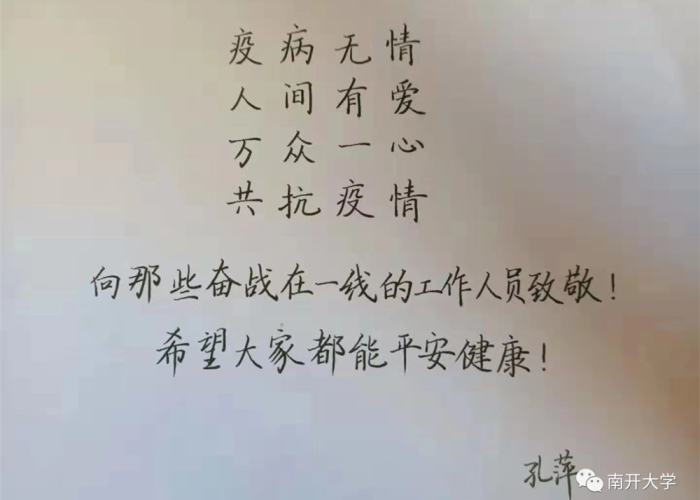 疫病无情
人间有爱
万众一心
共抗疫情
向那些奋战在一线的工作人员致敬！
希望大家都能平安健康！
孔萍
南开大学